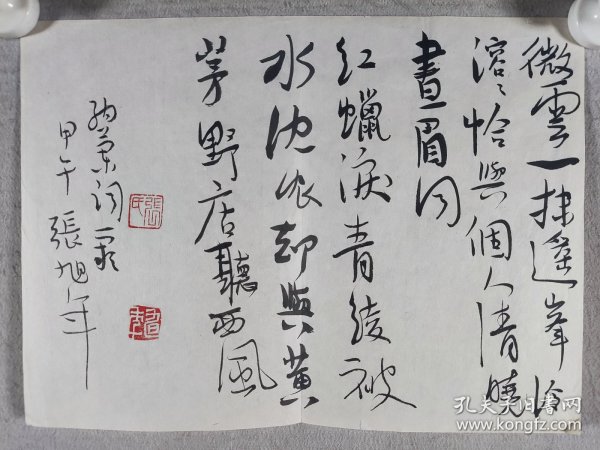 微雲一抹遥峯冷
溶〻恰與個人清曉
畫眉同
紅蠟淚青綾被
水沈濃却與黃
茅野店聽西風
納蘭詞一闋
甲午 張旭年
張氏
孔夫子旧书网
www.kongfz.com